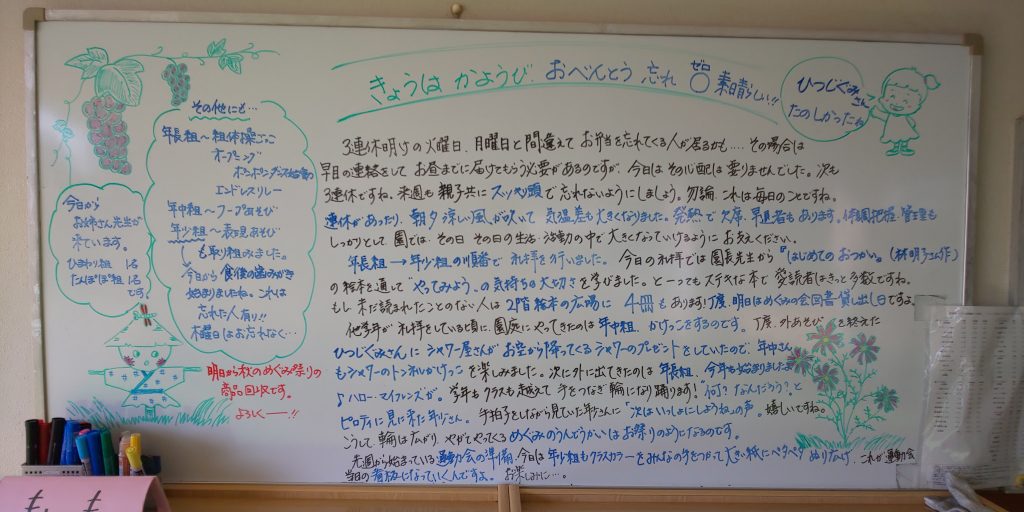 きょうは かようび. おべんとう 忘れ ゼロ ○ 素晴らしい!!
ひつじぐみさん
たのしかったね
3連休明けの火曜日、月曜日と間違えてお弁当を忘れてくる人が居るかも.... その場合は
早目の連絡をして お昼までに届けてもらう必要があるのですが、今日はその心配は要りませんでした。次も
3連休ですね。来週も親子共にスッキリ頭で忘れないようにしましょう。勿論 これは毎日のことですね。
連休があったり、朝夕涼しい風が吹いて 気温差も大きくなりました。発熱で欠席、早退者もあります。体調把握、管理も
しっかりとして 園では、その日 その日の生活・活動の中で大きくなっていけるように お支えください。
年長組→年少組の順番で 礼拝を行いました。 今日の礼拝では園長先生から『はじめてのおつかい』(林明子 作)
の絵本を通して「やってみよう」の気持ちの大切さを学びました。とーってもステキな本で愛読者はきっと多数ですね。
もし、まだ読まれたことのない人は 2階絵本の広場に 4冊もあります! 丁度、明日はめぐみの会図書貸し出し日ですよ。
他学年が礼拝をしている頃に、園庭にやってきたのは年中組、かけっこをするのです。丁度、外あそびを終えた
ひつじぐみさんに シャワー屋さんが お空から降ってくるシャワーのプレゼントをしていたので、年中さん
もシャワーのトンネルかけっこを楽しみました。次に外に出てきたのは年長組、今年も始まりました
♪ハロー・マイフレンズが。学年もクラスも越えて 手をつなぎ 輪になり踊ります!"何? なんだろう?"と
ピロティに見に来た年少さん。手拍子をしながら見ていた年少さんに"次はいっしょにしようね"の声。嬉しいですね。
こうして 輪は広がり、やがてやってくる めぐみのうんどうかいは お祭りのようになるのです。
先週から始まっている 運動会の準備、今日は 年少組もクラスカラーをみんなの手をつかって大きい紙にペタペタ ぬり広げ、これが運動会
当日の看板になっていくんですよ。 お楽しみに…。
その他にも…
年長組〜組体操ごっこ
オープニング
エンドレスリレー
年中組〜フープあそび
年少組〜表現あそび
も取り組みました。
今日から 食後の歯みがき
始まりましたね。これは
忘れた人有り!!
木曜日はお忘れなく…
今日から
お姉さん先生が
来ています。
ひまわり組 1名
たんぽぽ組 1名
です
明日から秋のめぐみ祭りの
商品回収です。
よろしくー!!